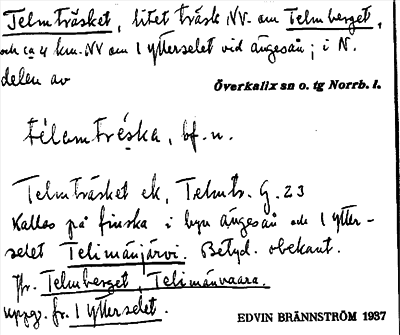 Telmträsket, litet träsk NV. om Telmberget,
och ca 4 km. NV om Ytterselet vid Ängesån; i N.
delen av
Överkalix sn o. tg Norrb. l.
télamtrèska, bf. n.
Telmträsket ek, Telmtr. G. 23
Kallas på finska i byn Ängesån och Ytter-
selet Telimänjärvi. Betyd. obekant.
Jfr. Telmberget, Telimänvaara.
uppg. fr. Ytterselet.
EDVIN BRÄNNSTRÖM 1937